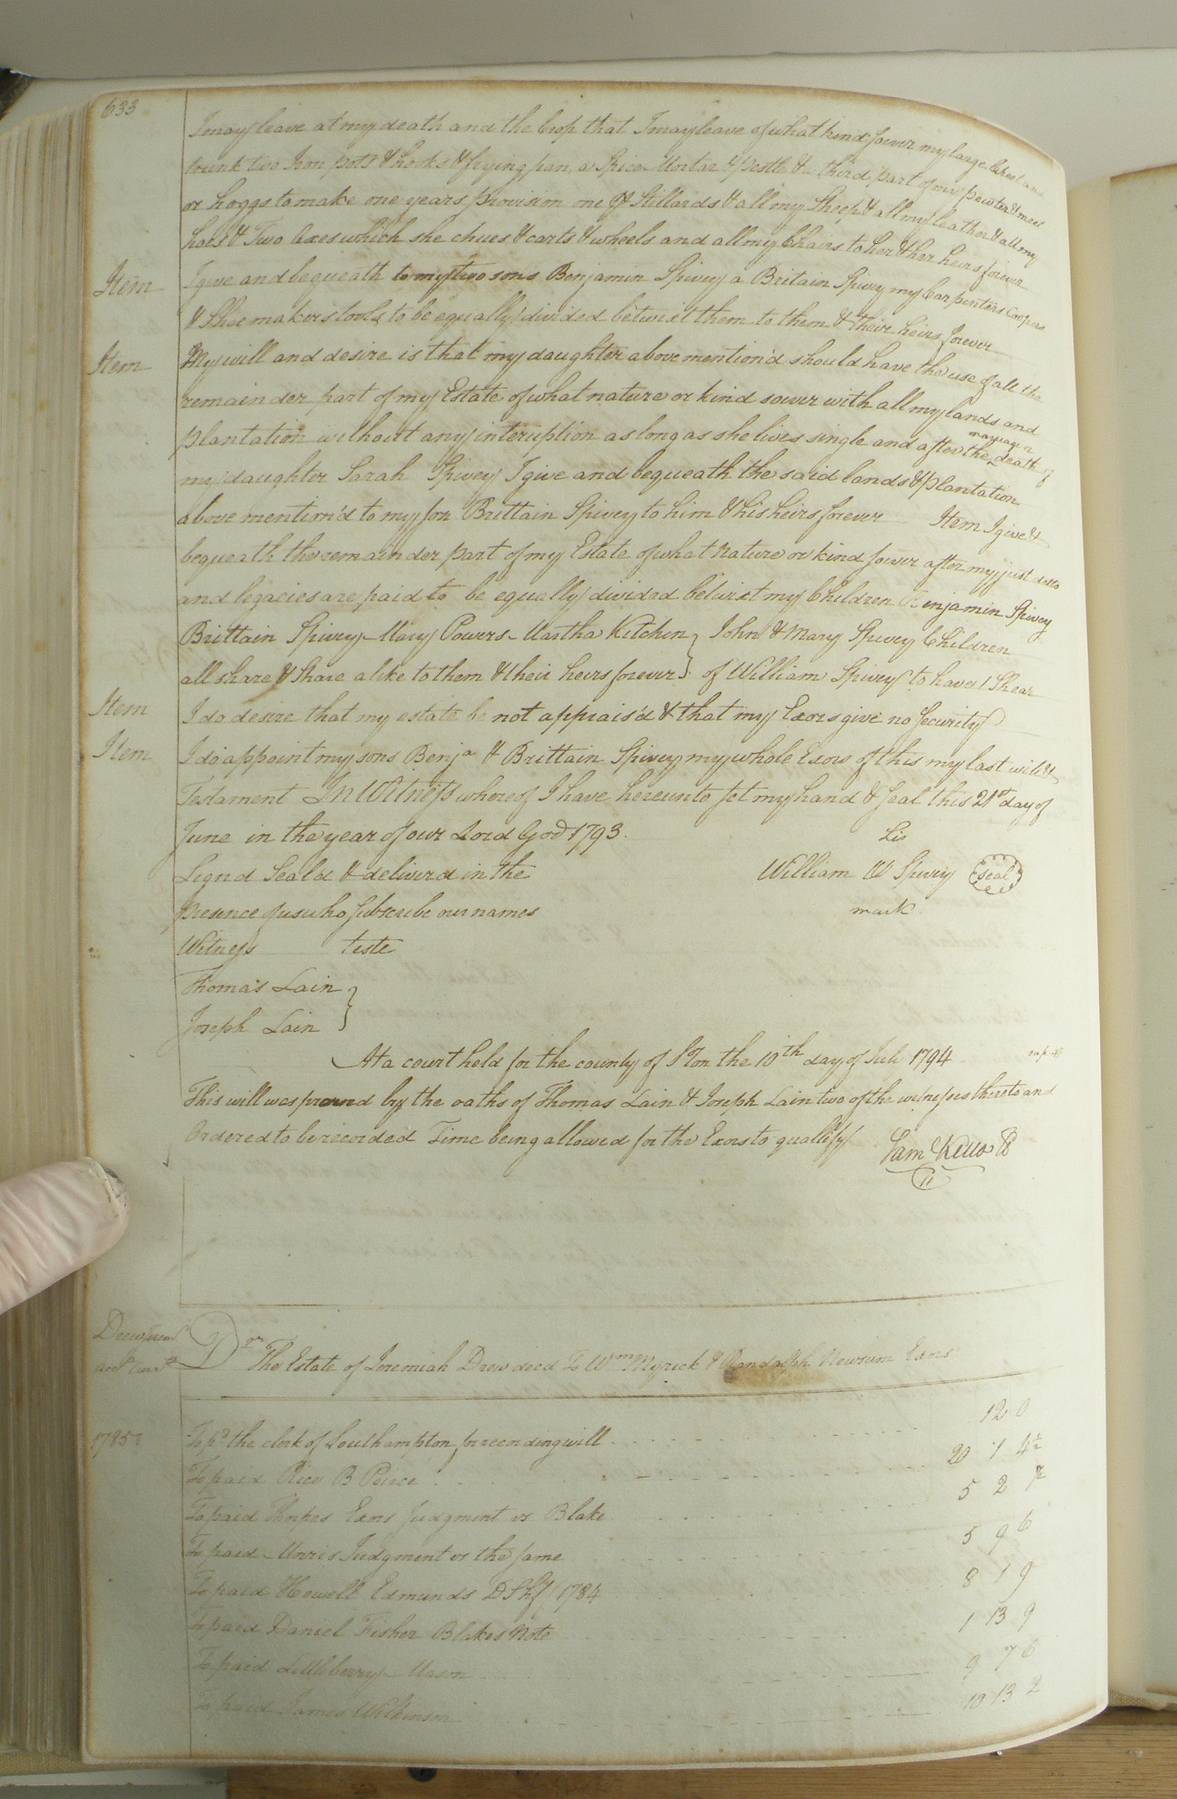 633
I may leave at my death and the Crop that I may leave of what kind soever my large Chest and
trunk two Iron pots & hooks & frying pan, a Spice Mortar & pestle & a third part of my pewter & meat
or hoggs to make one years provision one pr Stillards & all my Sheep & all my leather & all my
hoes & Two Axes which she chues & carts & wheels and all my Chairs to her & her heirs forever
Item I give and bequeath to my two sons Benjamin Spivey a Brittain Spivey my Carpenters Coopers
& Shoe makers tools to be equally divided betwixt them to them & their heirs forever
Item My will and desire is that my daughter above mention'd should have the use of all the
remainder part of my Estate of what nature or kind sower with all my lands and
plantation without any interuption as long as she lives single and after the marriage or death of
my daughter Sarah Spivey I give and bequeath the said lands & plantation
above mention'd to my son Brittain Spivey to him & his heirs forever Item I give &
bequeath the remainder part of my Estate of what Nature or kind sower after my just debts
and legacies are paid to be equally divided betwixt my Children Benjamin Spivey
Brittain Spivey Mary Powers Martha Kitchen } John & Mary Spivey Children
all share & share alike to them & their heirs forever } of William Spivey to have 1 Shear
Item I do desire that my estate be not apprais'd & that my Exors give no Security
Item I do appoint my sons Benja & Brittain Spivey my whole Exors of this my last will &
Testament In Witness whereof I have hereunto set my hand & Seal this 21st day of
June in the year of our Lord God 1793. his
Signd Seald & deliverd in the William W Spivey (seal)
Presence of us who subscribe our names mark
Witness teste
Thomas Lain }
Joseph Lain }
At a court held for the county of Ston the 10th day of July 1794
This will was proved by the oaths of Thomas Lain & Joseph Lain two of the witnesses thereto and
Ordered to be recorded Time being allowed for the Exors to quallify Sam Kello
Dr The Estate of Jeremiah Drew decd To Wm Myrick & Randolph Newsum Exors
1785 To pd the clerk of Southampton for recording will 12 0
To paid Rice B Peirce 20 1 4½
To paid Thorpes Exors Judgment vs Blake 5 2
To paid Unris Judgment vs the same 5 9 6
To paid Howell Edmunds D Shf 1784 8 1 9
To paid Daniel Fisher Blakes Note 1 13 9
To paid Littleberry Mason 9 7 6
To paid James Wilkinson 10 13 2